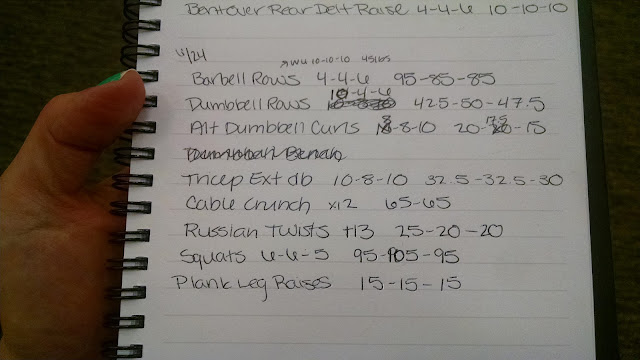 Bentover Rear Delt Raise 4-4-6 10-10-10
4/24
WU 10-10-10 45lbs
Barbell Rows 4-4-6 95-85-85
10-4-6
Dumbbell Rows 42.5-50-47.5
Alt Dumbbell Curls 8-8-10 20-17.5-15
Tricep Ext db 10-8-10 32.5-32.5-30
Cable Crunch x12 65-65
Russian Twists +13 25-20-20
Squats 6-6-5 95-105-95
Plank Leg Raises 15-15-15